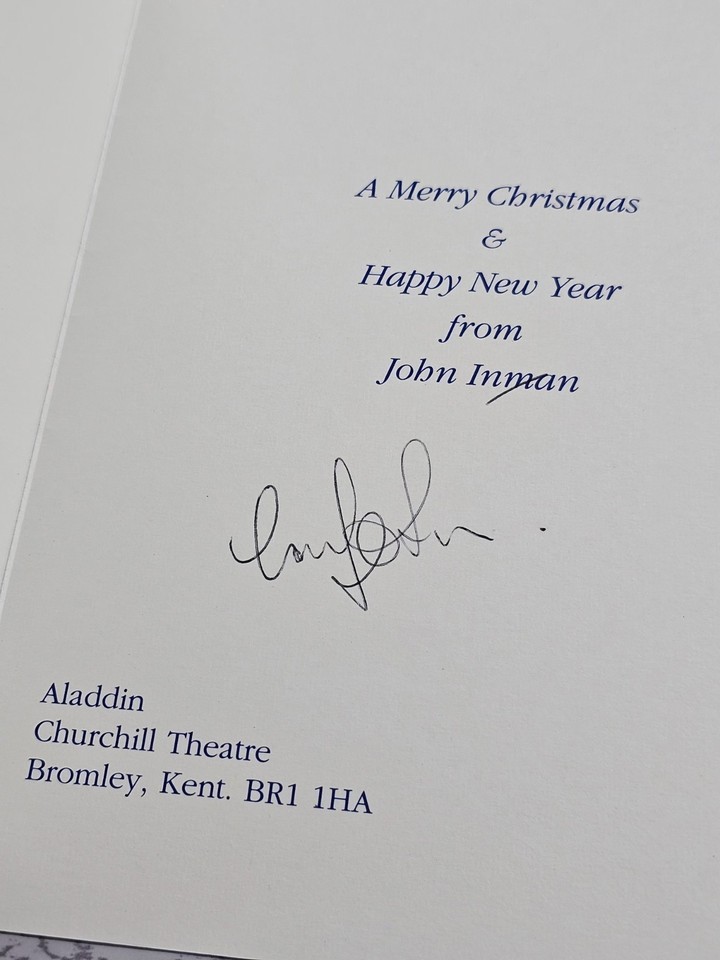 A Merry Christmas
&
Happy New Year
from
John Inman
Aladdin
Churchill Theatre
Bromley, Kent. BR1 1HA